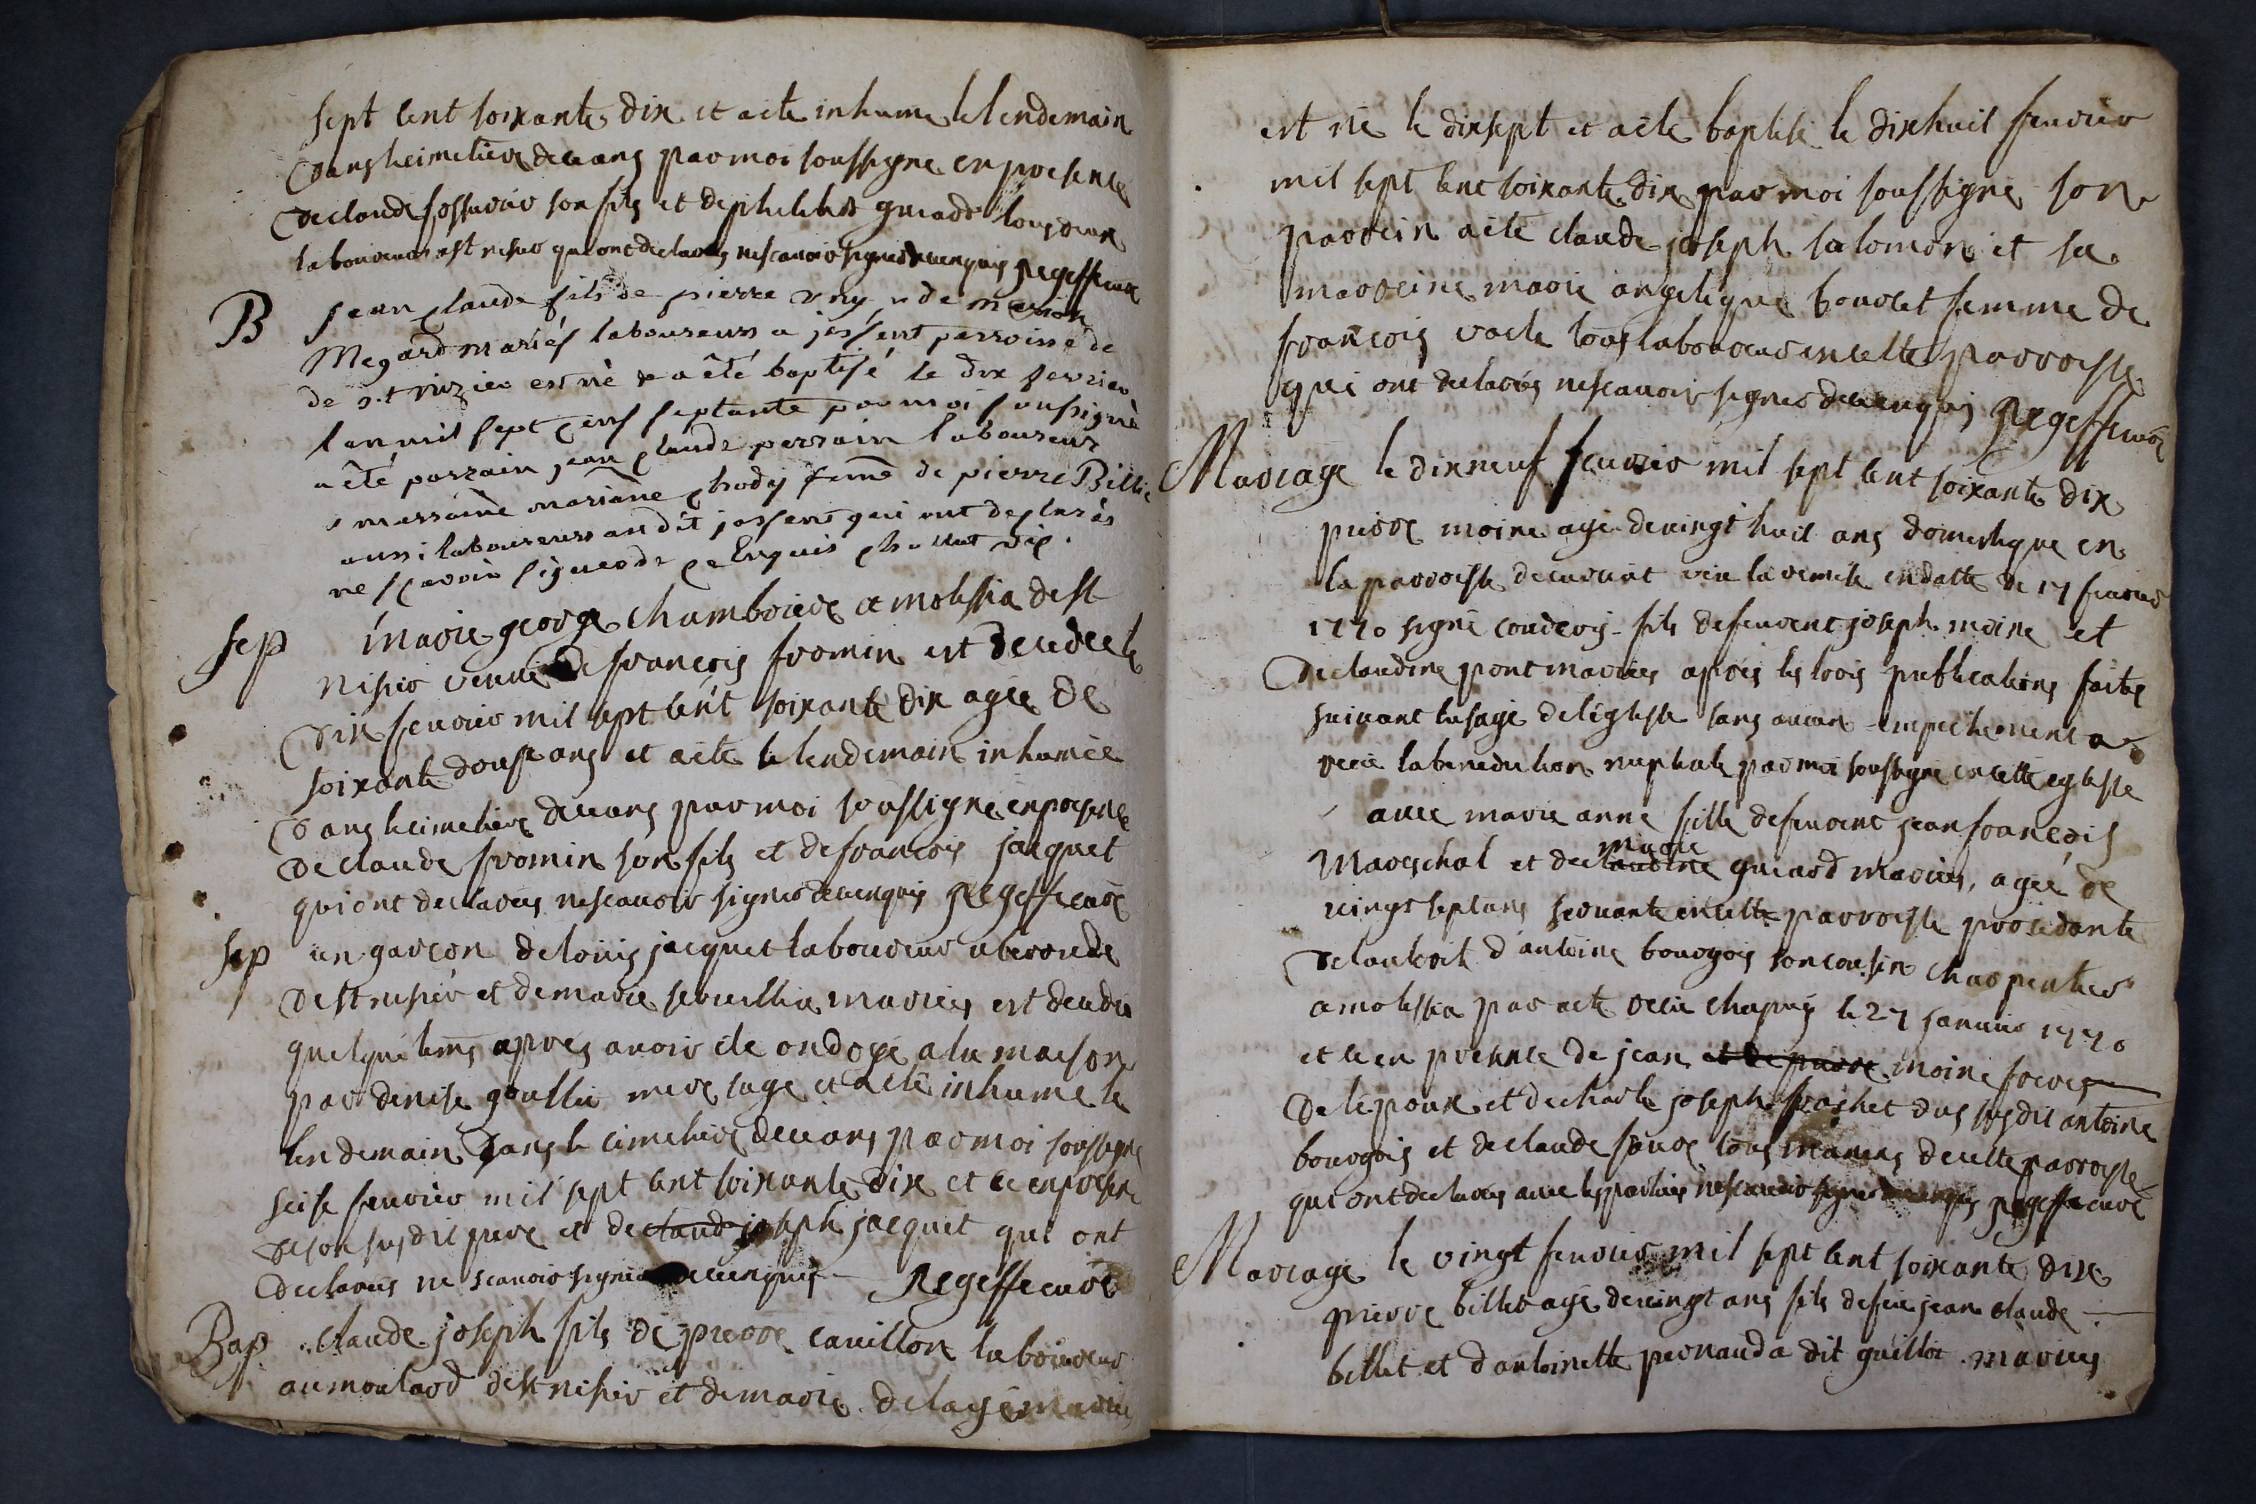 sept cent soixante dix et aété inhume le lendemain
dans le cimetiere deceans par moi soussigne en presence
de claude fosserier son fils et de philibert guiard tous deux
laboureurs a st nisier qui ont declarés ne scavoir signer de ce enquis Regeffe curé
B Jean claude fils de pierre & de marion
Megard mariés laboureurs a jossent parroisse de
de s.t nizier est né & a été baptisé le dix fevrier
l'an mil sept cens septante par moi soussigné
a été parrain jean claude perrain laboureur
& marraine mariane chody feme de pierre Billie
aussi laboureurs audit jossent qui ont declarés
ne sçavoir signer de ce enquis vic.
sep marie george chambriere a molissia de st
nisier veuve de francois fromin est decedee le
dix fevrier mil sept cent soixante dix agée de
soixante douse ans et aété le lendemain inhumée
dans le cimetiere deceans par moi soussigne en presence
de claude fromin son fils et de francois jacquet
qui ont declarés ne scavoir signer de ce enquis Regeffe curé
sep un garcon de louis jacquet laboureur
de st nisier et de marie mariés est decedé
quelque tems aprés avoir ete ondoyé a la maison
par denise goullie mere sage et aété inhume le
lendemain dans le cimetiere deceans par moi soussigne
seise fevrier mil sept cent soixante dix et ce en presence
de son susdit pere et de claude joseph jacquet qui ont
declarés ne scavoir signer de ce enquis Regeffe curé
Bap claude joseph fils de pierre cavillon laboureur
au moulard de st nisier et de marie delaye mariés
est né le dixsept et aété baptisé le dixhuit fevrier
mil sept cent soixante dix par moi soussigné son
parrein aété claude joseph salomon et sa
marreine marie angelique bouvet femme de
francois vacle tous laboureurs en cette parroisse
qui ont declarés ne scavoir signer de ce enquis Regeffe curé
Mariage le dixneuf fevrier mil sept cent soixante dix
pierre moine agé de vingt huit ans domestique en
la parroisse de curciat veu la remise en datte de 17 fevrier
1770 signé couderois fils de feu vincent joseph moine et
de claudine pont mariés aprés les trois publications faites
suivant lusage de léglisse sans aucun empechement a
receu la benediction nuptiale par moi soussigné en cette eglisse
avec marie anne fille de feu vincent jean francois
Mareschal et de claudine marie guiard mariés, agée de
vingt sept ans servante en cette parroisse procedante
de lautorité d'antoine bourgois son cousin charpentier
a molissia par acte receu chapuis le 27 janvier 1770
et ce en presence de jean et de pierre moine freres
de lépoux et de charle joseph du susdit antoine
bourgois et de claude tous manans de cette parroisse
qui ont declarés avec les parties ne scavoir signer de ce enquis Regeffe curé
Mariage le vingt fevrier mil sept cent soixante dix
pierre billet agé de vingt ans fils de feu jean claude
billet et d'antoinette pernauda dit guillot mariés